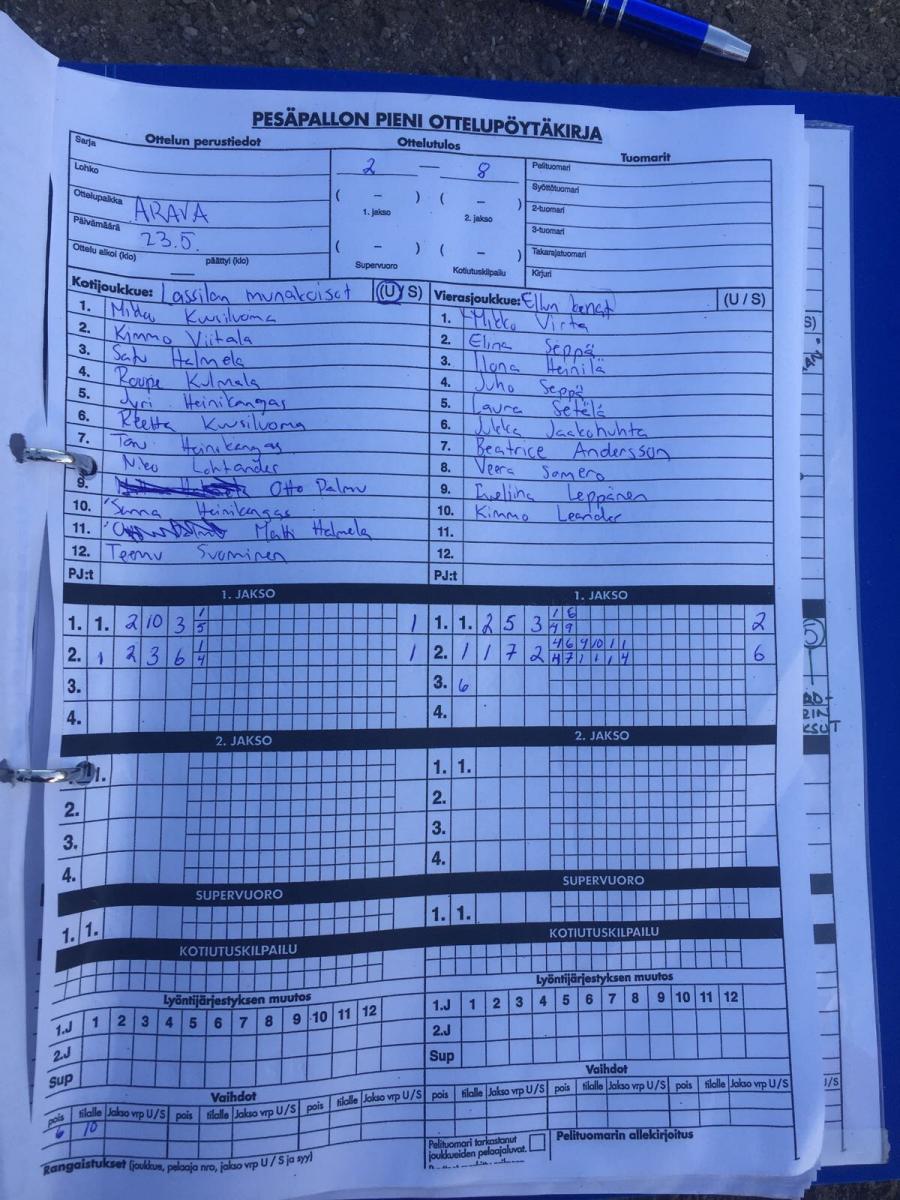 PESÄPALLON PIENI OTTELUPÖYTÄKIRJA
Ottelun perustiedot Ottelutulos Tuomarit
Sarja
Lohko
Ottelupaikka ARAVA
Päivämäärä 23.5.
Ottelu alkoi (klo) päättyi (klo)
2 — 8
( – ) ( – )
1. jakso 2. jakso
( – ) ( – )
Supervuoro Kotiutuskilpailu
Pelituomari
Syöttötuomari
2-tuomari
3-tuomari
Takarajatuomari
Kirjuri
Kotijoukkue: Lassilan munakoisot (U/S)
1. Mikko Kuusiluoma
2. Kimmo Viitala
3. Satu Halmela
4. Roope Kulmala
5. Jyri Heinikangas
6. Reetta Kuusiluoma
7. Toni Heinikangas
Nico Lohtander
9. Otto Palmu
10. Sanna Heinikangas
11. Matti Halmela
12. Teemu Suominen
PJ:t
Vierasjoukkue: Ellun kanat (U / S)
1. Mikko Virta
2. Elina Seppä
3. Ilona Heinilä
4. Juho Seppä
5. Laura Setälä
6. Jukka Jaakohuhta
7. Beatrice Andersson
8. Veera Somero
9. Eveliina Leppänen
10. Kimmo Leander
11.
12.
PJ:t
1. JAKSO 1. JAKSO
1. 1. 2 10 3 1 5 1
2. 1 2 3 6 1 4 1
3.
4.
1. 1. 2 5 3 1 6 4 9 2
2. 1 1 7 2 4 6 9 10 1 1 4 7 1 1 1 4 6
3. 6
4.
2. JAKSO 2. JAKSO
1.
2.
3.
4.
1. 1.
2.
3.
4.
SUPERVUORO SUPERVUORO
1. 1. 1. 1.
KOTIUTUSKILPAILU KOTIUTUSKILPAILU
Lyöntijärjestyksen muutos
1.J 1 2 3 4 5 6 7 8 9 10 11 12
2.J
Sup
Lyöntijärjestyksen muutos
1.J 1 2 3 4 5 6 7 8 9 10 11 12
2.J
Sup
Vaihdot
pois tilalle Jakso vrp U/S pois tilalle Jakso vrp U/S pois tilalle Jakso vrp U/S
6 10
Vaihdot
pois tilalle Jakso vrp U/S pois tilalle Jakso vrp U/S pois tilalle Jakso vrp U/S
Rangaistukset (joukkue, pelaaja nro, jakso vrp U / S ja syy)
Pelituomari tarkastanut
joukkueiden pelaajaluvat.
Pelituomarin allekirjoitus